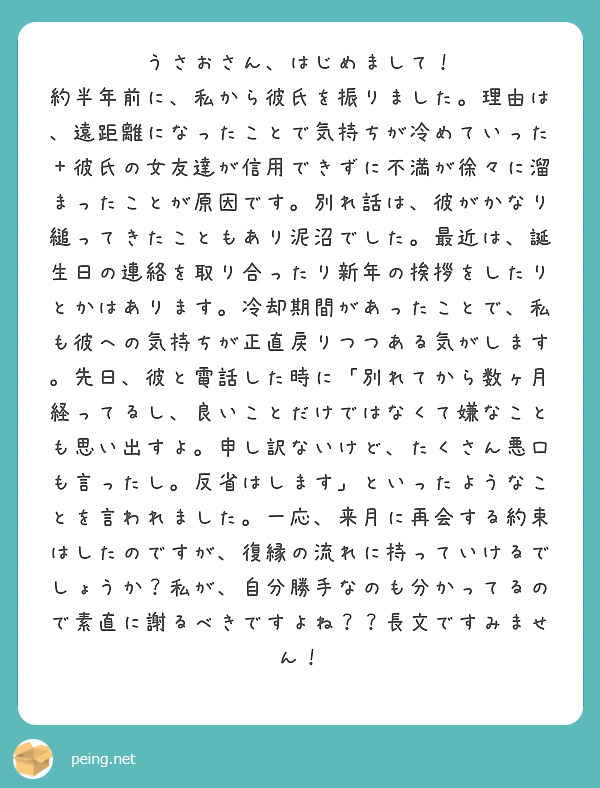 うさおさん、はじめまして！
約半年前に、私から彼氏を振りました。理由は
、遠距離になったことで気持ちが冷めていった
＋彼氏の女友達が信用できずに不満が徐々に溜
まったことが原因です。別れ話は、彼がかなり
縋ってきたこともあり泥沼でした。最近は、誕
生日の連絡を取り合ったり新年の挨拶をしたり
とかはあります。冷却期間があったことで、私
も彼への気持ちが正直戻りつつある気がします
。先日、彼と電話した時に「別れてから数ヶ月
経ってるし、良いことだけではなくて嫌なこと
も思い出すよ。申し訳ないけど、たくさん悪口
も言ったし。反省はします」といったようなこ
とを言われました。一応、来月に再会する約束
はしたのですが、復縁の流れに持っていけるで
しょうか？私が、自分勝手なのも分かってるの
で素直に謝るべきですよね？？長文ですみませ
ん！
peing.net